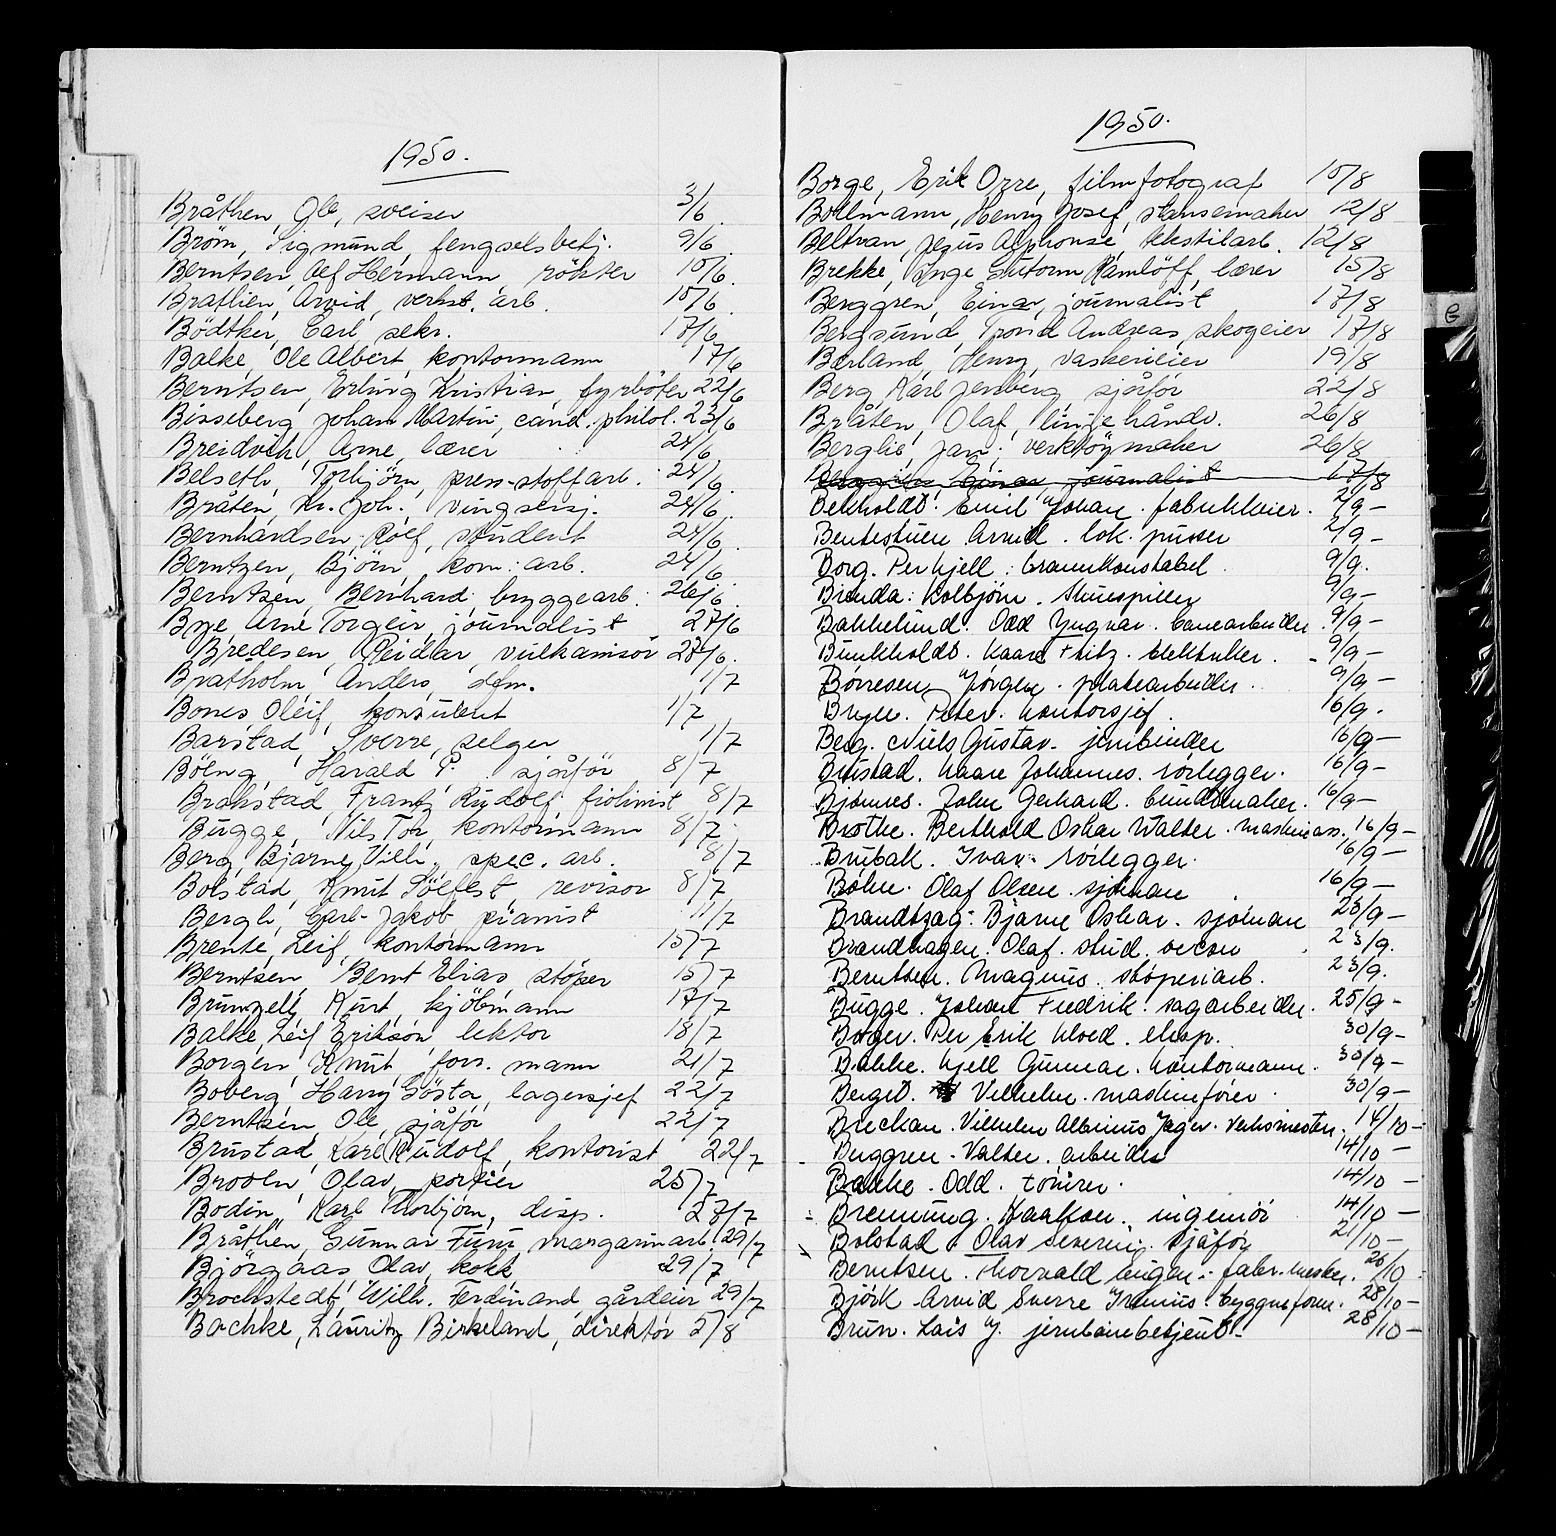 1950.
Bråthen, Ole, sveiser 3/6.
Bröm, Sigmund, fengselsbetj. 9/6.
Berntsen, Leif Hermann, rökter 10/6.
Bratlien, Arvid, verkst. arb. 10/6.
Bödtker, Carl, sekr. 17/6.
Balke, Ole Albert, kontormann 17/6
Berntsen, Erling Kristian, fyrböter 22/6
Bisseberg, Johan Martin, cand. philol. 23/6
Breidvik, Arne, lærer 24/6.
Belseth, Torbjörn, press-stoffarb. 24/6.
Bråten, Kr. Joh., vingsersj. 24/6.
Bernhardsen, Rolf, student 24/6.
Berntzen, Björn, kom. arb. 24/6.
Berntsen, Bernhard, bryggearb. 26/6.
Bye, Arne Torgeir, journalist 27/6
Bredesen, Reidar, vulkanisör 28/6.
Bratholm, Anders, dom. 1/7
Bones Oleif, konsulent 1/7
Barstad, Sverre, selger 1/7
Böeng, Harald P. sjåför 8/7
Brakstad, Frantz Rudolf, fiolinist 8/7
Bugge, Nils Tor, kontormann 8/7.
Berg, Bjarne Vilh., spec. arb. 8/7
Bolstad, Knut Sölfest, revisor 8/7
Bergh, Carl-Jakob pianist 11/7
Brente, Leif, kontormann 15/7
Berntsen, Bernt Elias, stöper 15/7
Brunzell, Kurt, kjöbmann 17/7
Balke, Leif Erikson, lektor 18/7
Borgen, Knut, forr. mann 21/7
Boberg, Harry Gösta, lagersjef 22/7
Berntsen, Ole, sjåför 22/7
Brustad, Karl Rudolf, kontorist 22/7
Brovln, Olav, portier 25/7
Bodin, Karl Thorbjörn, disp. 28/7
Bråthen, Gunnar Funi, margarinarb. 29/7
Björgaas, Olav, kokk 29/7
Brochstedt, Wilh. Ferdinand gårdeier 29/7
Bachke, Lauritz Birkeland, direktör 5/8
1950.
Borge, Erik Orre, filmfotograf 10/8
Bollmann, Henry Josef, stansemaker 12/8
Beltran, Jesus Alphonse, tekstilarb. 12/8
Brekke, Inge Gutorm Ramlöff, lærer 15/8
Berggren, Einar, journalist 17/8
Bergsund, Trond Andreas, skogeier 17/8
Bærland, Henry, vaskerieier 19/8
Berg, Karl Jenberg, sjåför 22/8
Bråten, Olaf, linjehåndv. 26/8
Berglie, Jan, verktöymaker 26/8
Berggren, Einar, journalist 17/8
Bekholdt. Emil Johan. fabrikkeier. 2/9-
Bentestuen Arvid. lok. pusser 2/9-
Borg. Per Kjell. brannkonstabel. 9/9.
Brenda. Kolbjörn. Skuespiller 9/9-
Bakkelund. Odd Yngvar. banearbeider. 9/9-
Bunkholdt. Kaare Fritz. elektriker. 9/9-
Börresen, Jörgen. platearbeider. 9/9-
Bryn. Peter. Kontorsjef. 16/9.
Berg. Niels Gustav. jernbinder 16/9-
Bustad. Kaare Johannes. rörlegger. 16/9-
Bjönnes. John Gerhard. buntmaker. 16/9-
Brothe. Berthold Oskar Walter. maskinass. 16/9-
Brubak. Ivar. rörlegger. 16/9-
Böhn. Olaf Olsen. sjömann 16/9-
Brandtzæg. Bjarne Oskar. sjömann 23/9-
Brandhagen. Olaf. stud. oecon 23/9.
Berntsen. Magnus. stöperiarb. 23/9.
Bugge. Johan Fredrik. sagarbeider. 25/9-
Bøger. Per Erik Kloed. eksp. 30/9-
Bakke. Kjell Gunnar. Kontormann. 30/9-
Bergt. Vilhelm. maskinfører. 30/9-
Buckan. Vilhelm Albinus Jager. Verksmester. 14/10-
Buggren. Valter. arbeider 14/10-
Bakke. Odd. tömrer. 14/10-
Brenning. Haakon. ingeniör 14/10-
Bolstad. Olav Severin. sjåför 21/10-
Berntsen. Thorvald Eugen. fabr. mester. 26/10.
Björk Arvid Sverre Irenius. byggneform. 28/10-
Brun. Lars J. jernbanebetjent- 28/10-